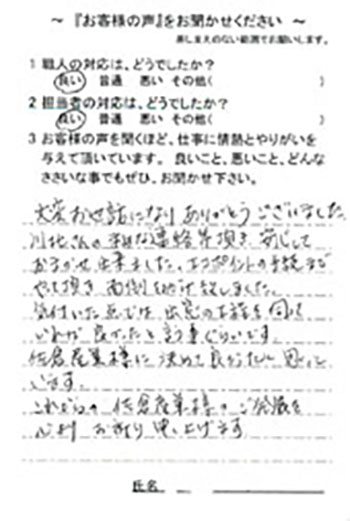 ～ 『お客様の声』をお聞かせください ～
差し支えのない範囲でお願いします。
1 職人の対応は、どうでしたか？
良い 普通 悪い その他( )
2 担当者の対応は、どうでしたか？
良い 普通 悪い その他( )
3 お客様の声を聞くほど、仕事に情熱とやりがいを
与えて頂いています。 良いこと、悪いこと、どんな
ささいな事でもぜひ、お聞かせ下さい。
大変お世話になりありがとうございました。
川北さんの 連絡等頂き 安心して
おまかせ出来ました。エコポイントの手続まで
やって頂き 面倒を
気付いた点では
いれば 良かったと言う事ぐらいです。
佐倉産業様に 決めて良かったと 思って
います。
これからの 佐倉産業様の ご発展を
心より お祈り 申し上げます
氏名